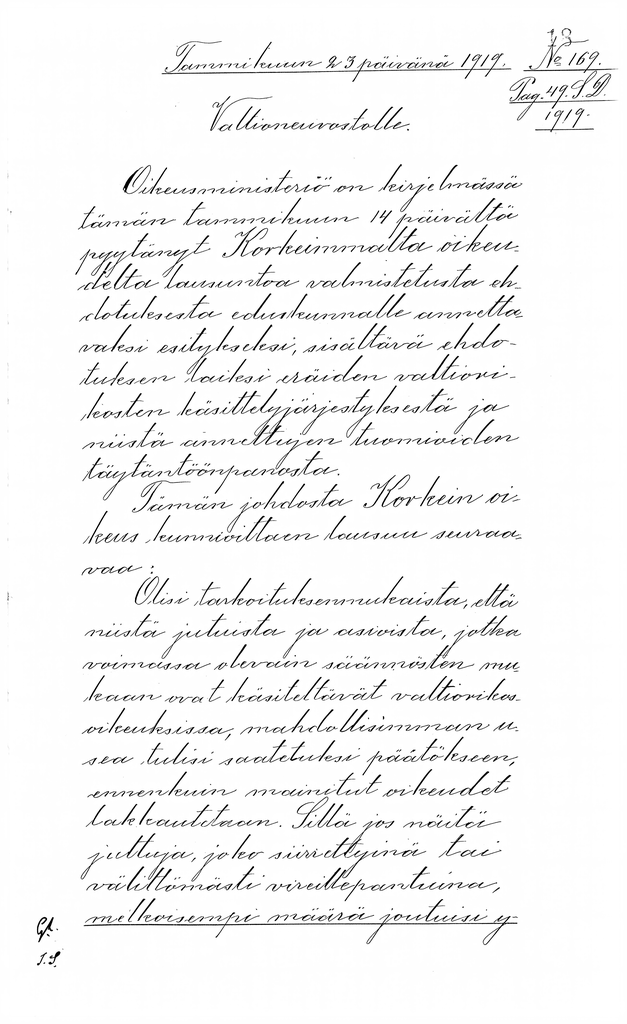 13
Tammikuun 23 päivänä 1919. № 169.
Pag. 49. S.D.
1919.
Valtioneuvostolle.
Oikeusministeriö on kirjelmässä
tämän tammikuun 14 päivältä
pyytänyt Korkeimmalta oikeu-
delta lausuntoa valmistetusta eh-
dotuksesta eduskunnalle annetta-
vaksi esitykseksi, sisältävä ehdo-
tuksen laiksi eräiden valtiori-
kosten käsittelyjärjestyksestä ja
niistä annettujen tuomioiden
täytäntöönpanosta.
Tämän johdosta Korkein oi-
keus kunnioittaen lausuu seuraa-
vaa:
Olisi tarkoituksenmukaista, että
niistä jutuista ja asioista, jotka
voimassa olevain säännösten mu-
kaan ovat käsiteltävät valtiorikos-
oikeuksissa, mahdollisimman u-
sea tulisi saatetuksi päätökseen,
ennenkuin mainitut oikeudet
lakkautetaan. Sillä jos näitä
juttuja, joko siirrettyinä tai
välittömästi vireillepantuina,
melkoisempi määrä joutuisi y-
J.S.